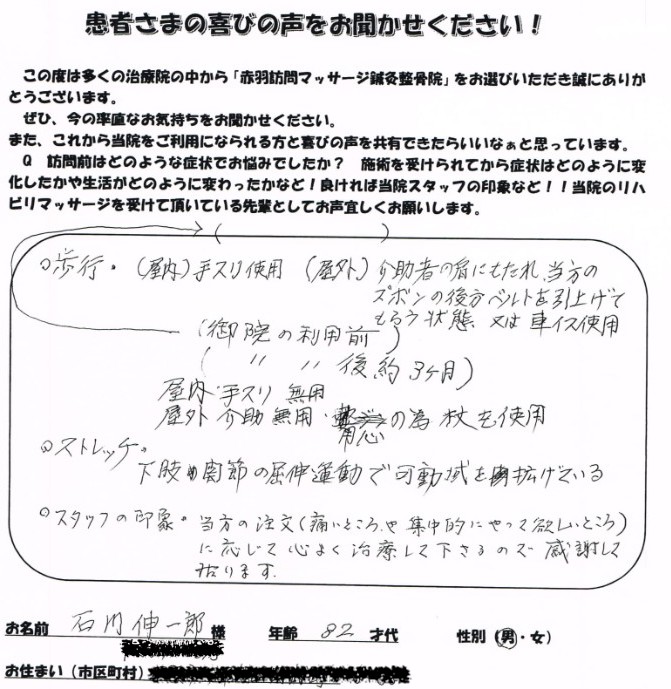 患者さまの喜びの声をお聞かせください！
この度は多くの治療院の中から「赤羽訪問マッサージ鍼灸整骨院」をお選びいただき誠にありが
とうございます。
ぜひ、今の率直なお気持ちをお聞かせください。
また、これから当院をご利用になられる方と喜びの声を共有できたらいいなぁと思っています。
Q 訪問前はどのような症状でお悩みでしたか？ 施術を受けられてから症状はどのように変
化したかや生活がどのように変わったかなど！良ければ当院スタッフの印象など！！当院のリハ
ビリマッサージを受けて頂いている先輩としてお声宜しくお願いします。
( )
○歩行。(屋内)手スリ使用 (屋外) 介助者の肩にもたれ、当方の
ズボンの後方ベルトを引上げて
もらう状態、又は車イス使用
(御院の利用前)
( 〃 〃 後約3ヶ月)
屋内 手スリ 無用
屋外 介助無用・用心の為杖を使用
○ストレッチ。
下肢関節の屈伸運動で可動域を拡げている
○スタッフの印象。当方の注文(痛いところや集中的にやって欲しいところ)
に応じて心よく治療して下さるので感謝して
おります。
お名前 石川伸一郎 様 年齢 82 才代 性別（男・女）
お住まい（市区町村）